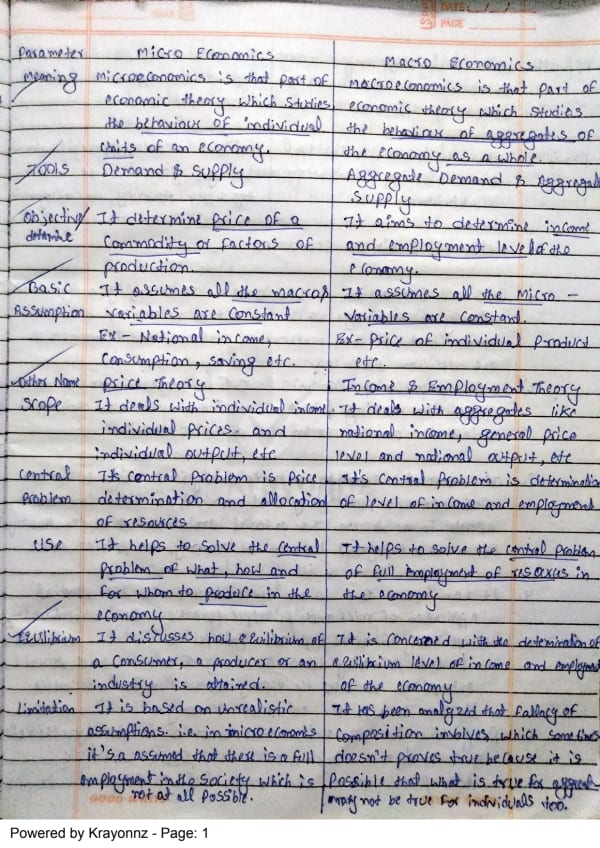 DATE: / /
PAGE
Parameter Micro Economics Macro Economics
Meaning Microeconomics is that part of Macroeconomics is that part of
economic theory which studies economic theory which studies
the behaviour of individual the behaviour of aggregates of
units of an economy. the economy as a whole.
Tools Demand & Supply Aggregate Demand & Aggregate
Supply
Objective/ It determine price of a It aims to determine income
detamine commodity or factors of and employment level of the
production. economy.
Basic It assumes all the macro It assumes all the Micro -
Assumption variables are constant variables are constant.
Ex - National income, Ex - Price of individual product
Consumption, saving etc. etc.
Other Name Price Theory Income & Employment Theory
Scope It deals with individual income It deals with aggregates like
individual prices and national income, general price
individual output, etc level and national output, etc
Central It's central problem is price It's central problem is determination
Problem determination and allocation of level of income and employment
of resources
Use It helps to solve the central It helps to solve the central problem
problem of what, how and of full employment of resources in
for whom to produce in the the economy
economy
Equilibrium It discusses how equilibrium of It is concerned with the determination of
a consumer, a producer or an equilibrium level of income and employment
industry is attained. of the economy
Limitation It is based on unrealistic It has been analyzed that fallacy of
assumptions. i.e. in microeconomics composition involves which sometimes
it's a assumed that there is a full doesn't proves true because it is
employment in the society which is possible that what is true for
not at all possible. may not be true for individuals too.
Powered by Krayonnz - Page: 1